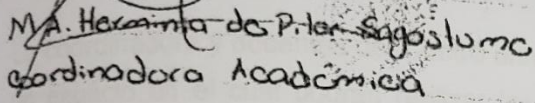 M.A. Herminia de Pilar Sagastume
Coordinadora Académica